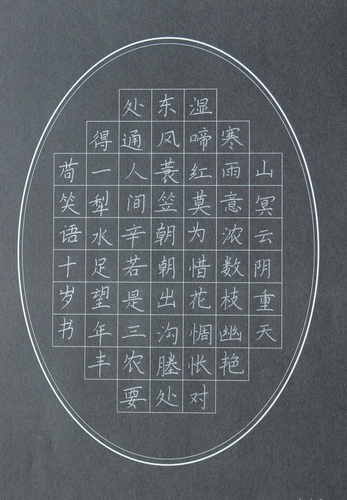 山冥云阴重天
寒雨意浓数枝幽艳
湿啼红莫为惜花惆怅对
东风蓑笠朝朝出沟塍处
处通人间辛若是三农要
得一犁水足望年丰
笑语十岁书